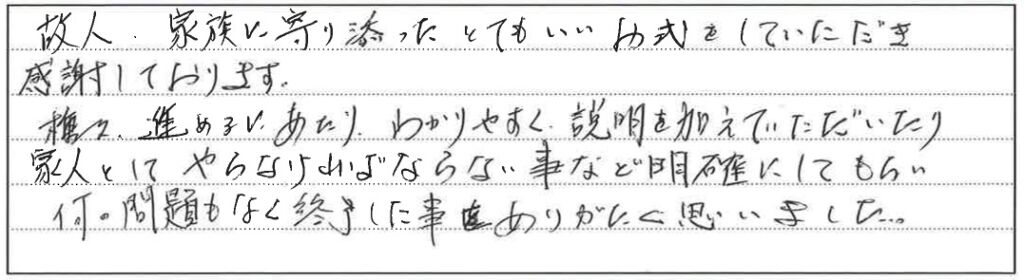 故人、家族に寄り添ったとてもいいお式をしていただき
感謝しております。
種々、進めるにあたり、わかりやすく、説明を加えていただいたり
家人としてやらなければならない事など明確にしてもらい
何の問題もなく終了した事ありがたく思いました。